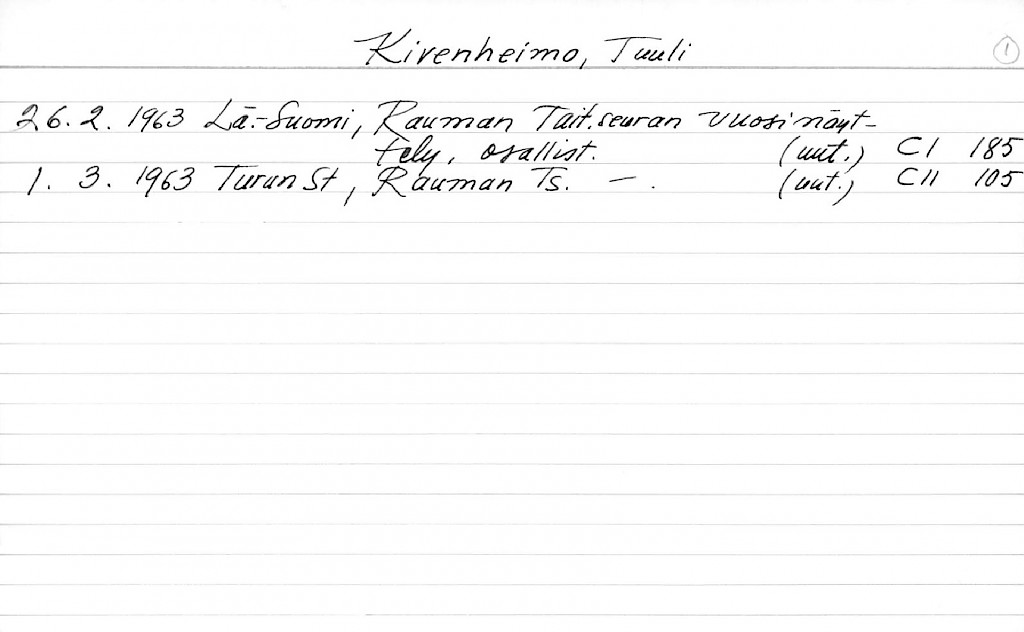 Kivenheimo, Tuuli 1
26.2. 1963 Lä.-Suomi, Rauman Tait.seuran vuosinäyt-
tely, osallist. (uut.) CI 185
1. 3. 1963 Turun St, Rauman Ts. – . (uut.) CII 105